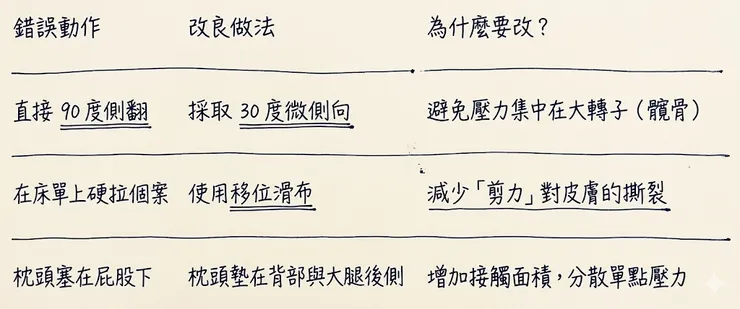 錯誤動作 改良做法 為什麼要改？
直接 90 度側翻 採取 30 度微側向 避免壓力集中在大轉子（髖骨）
在床單上硬拉個案 使用移位滑布 減少「剪力」對皮膚的撕裂
枕頭塞在屁股下 枕頭墊在背部與大腿後側 增加接觸面積，分散單點壓力